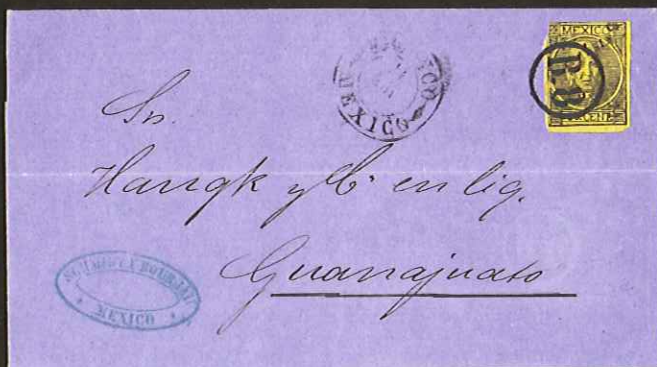 MEXICO
R.B
CENT
MEXICO
Sr.
Hangk y Cª en liq.
Guanajuato
MEXICO